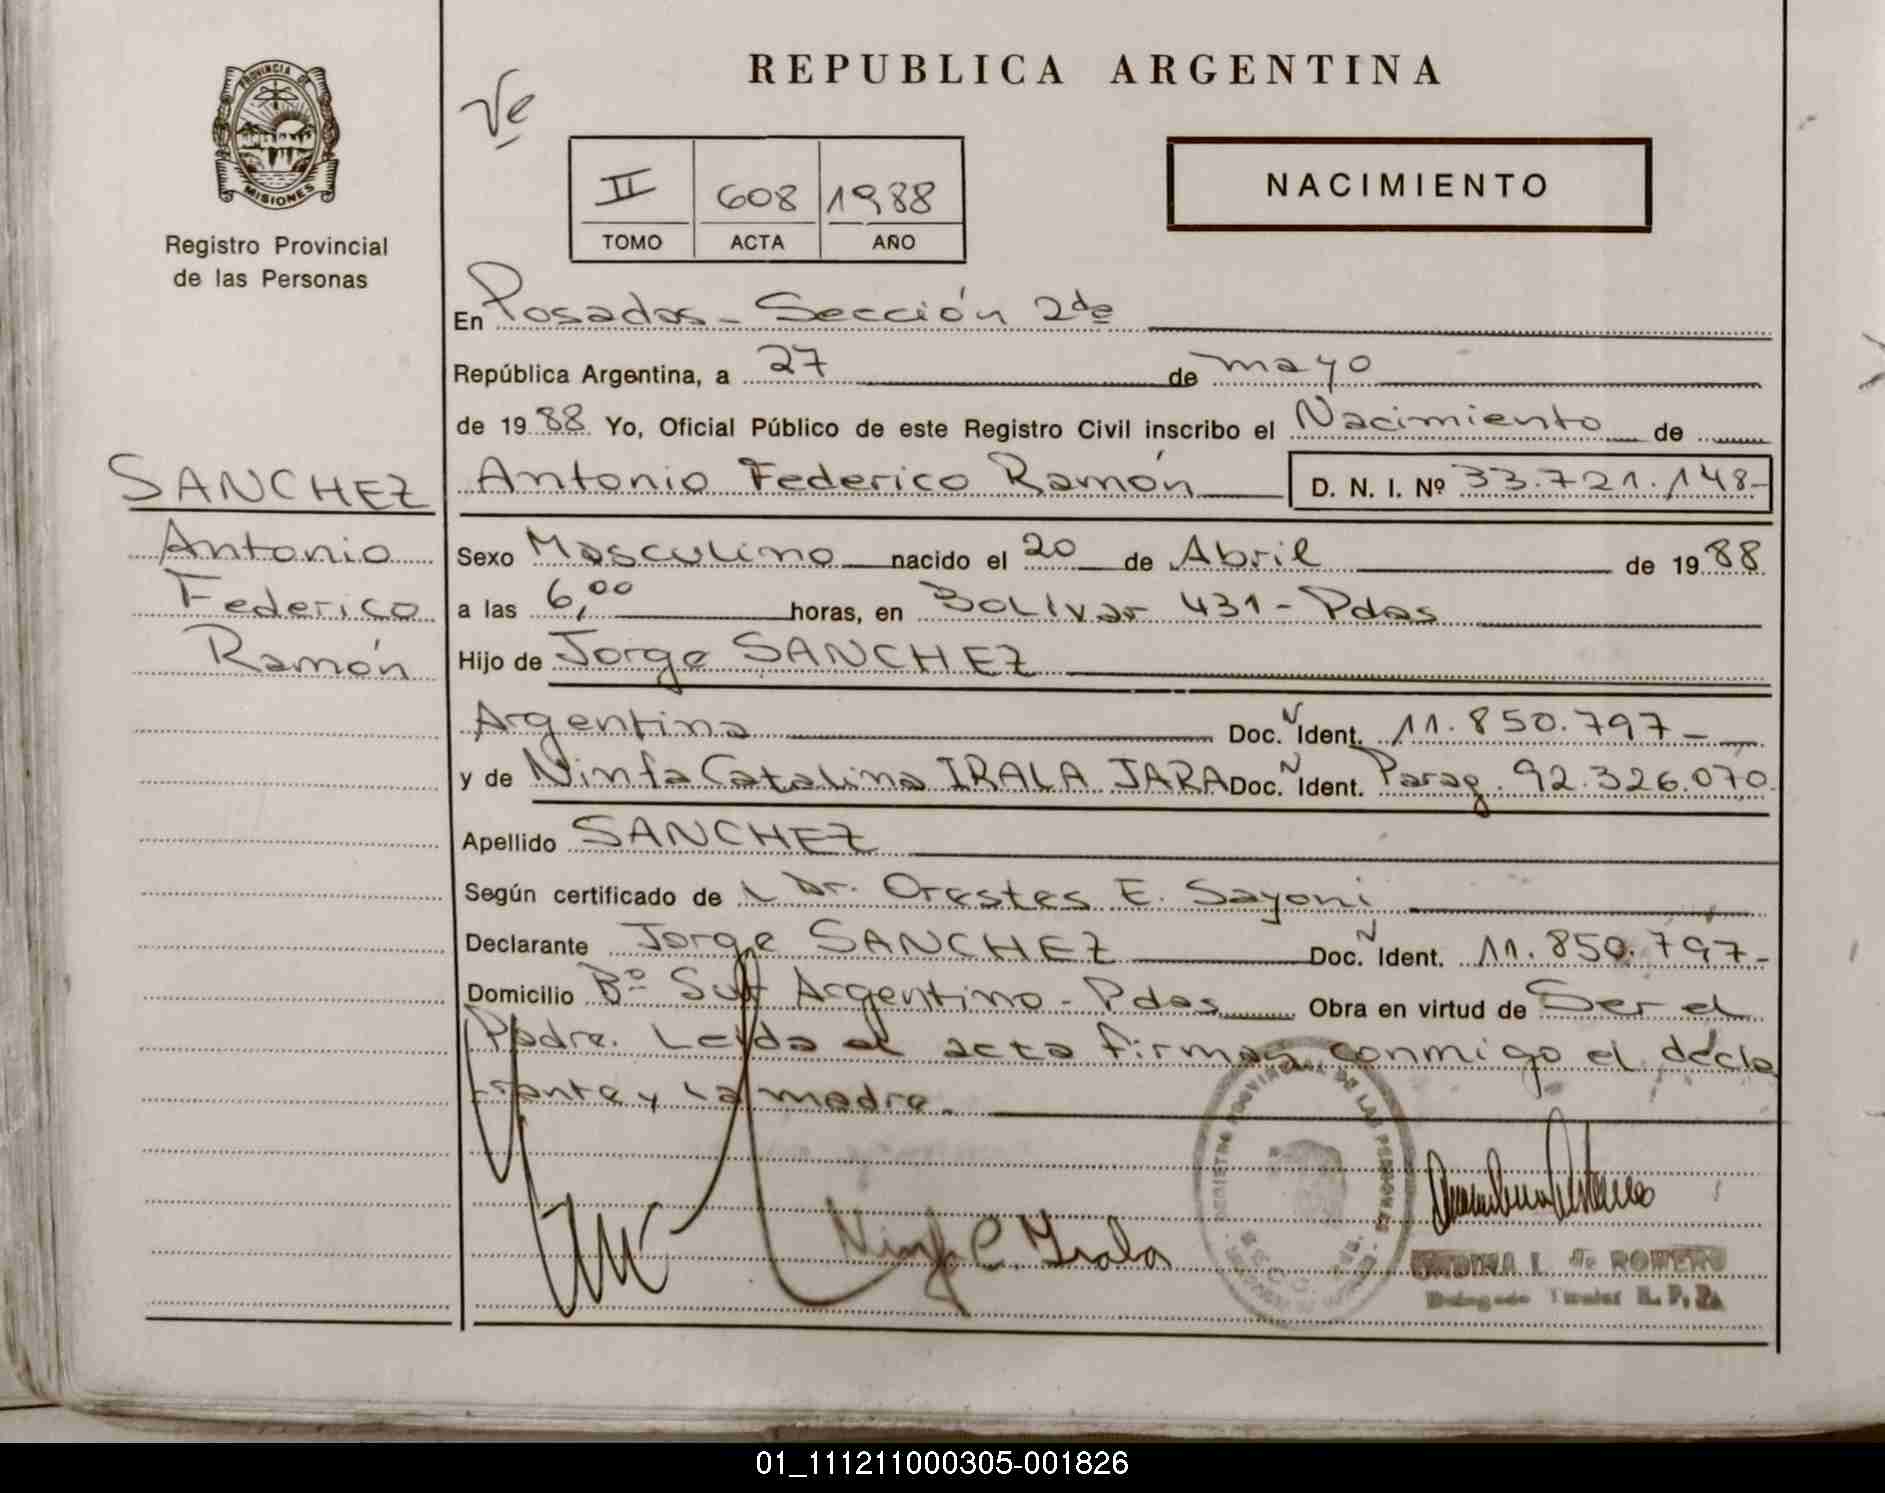 REPUBLICA ARGENTINA
PROVINCIA DE
MISIONES
Registro Provincial
de las Personas
II 608 1988
TOMO ACTA AÑO
NACIMIENTO
En Posadas - Sección 2da
República Argentina, a 27 de mayo
de 1988 Yo, Oficial Público de este Registro Civil inscribo el Nacimiento de
Antonio Federico Ramón D. N. I. Nº 33.721.148-
SANCHEZ
Antonio
Federico
Ramón
Sexo Masculino nacido el 20 de Abril de 1988
a las 6,00 horas, en Bolívar 431 - Pdas
Hijo de Jorge SANCHEZ
Argentina Doc. Ident. 11.850.797-
y de Ninfa Catalina IRALA JARA Doc. Ident. Parag. 92.326.070
Apellido SANCHEZ
Según certificado de Dr. Orestes E. Sayoni
Declarante Jorge SANCHEZ Doc. Ident. 11.850.797-
Domicilio Bº Sur Argentino - Pdas Obra en virtud de Ser el
Padre. Leída el acta firman conmigo el decla
rante y la madre.
Ninfa C. Irala
REGISTRO PROVINCIAL DE LAS PERSONAS
L. de ROMERO
Delegado Titular R. P. P.
01_111211000305-001826